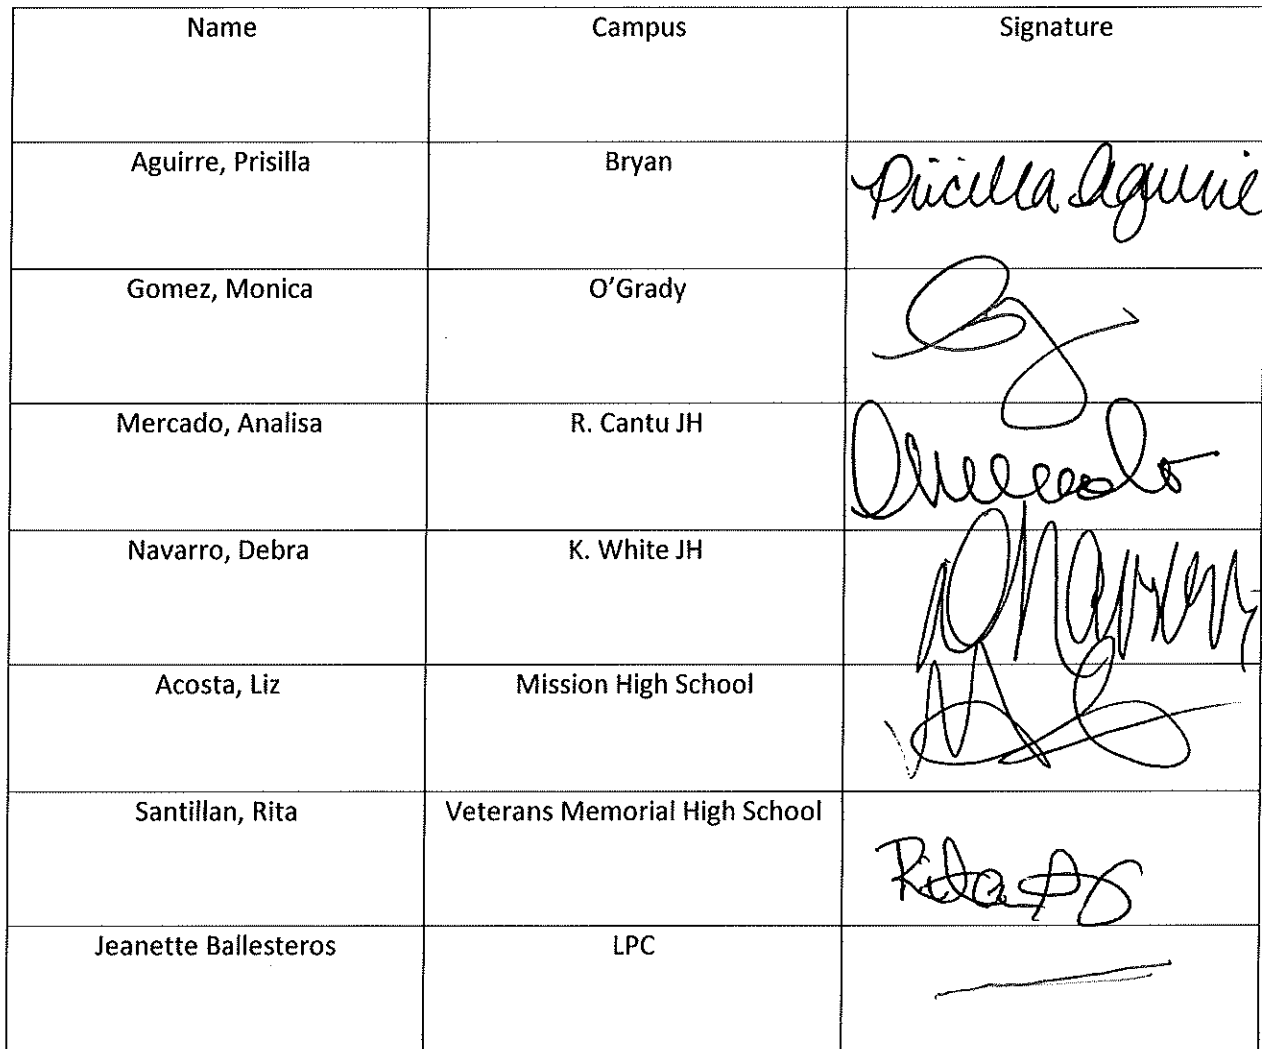 Name Campus Signature
Aguirre, Prisilla Bryan Pricilla Aguirre
Gomez, Monica O'Grady
Mercado, Analisa R. Cantu JH
Navarro, Debra K. White JH
Acosta, Liz Mission High School
Santillan, Rita Veterans Memorial High School Rita
Jeanette Ballesteros LPC